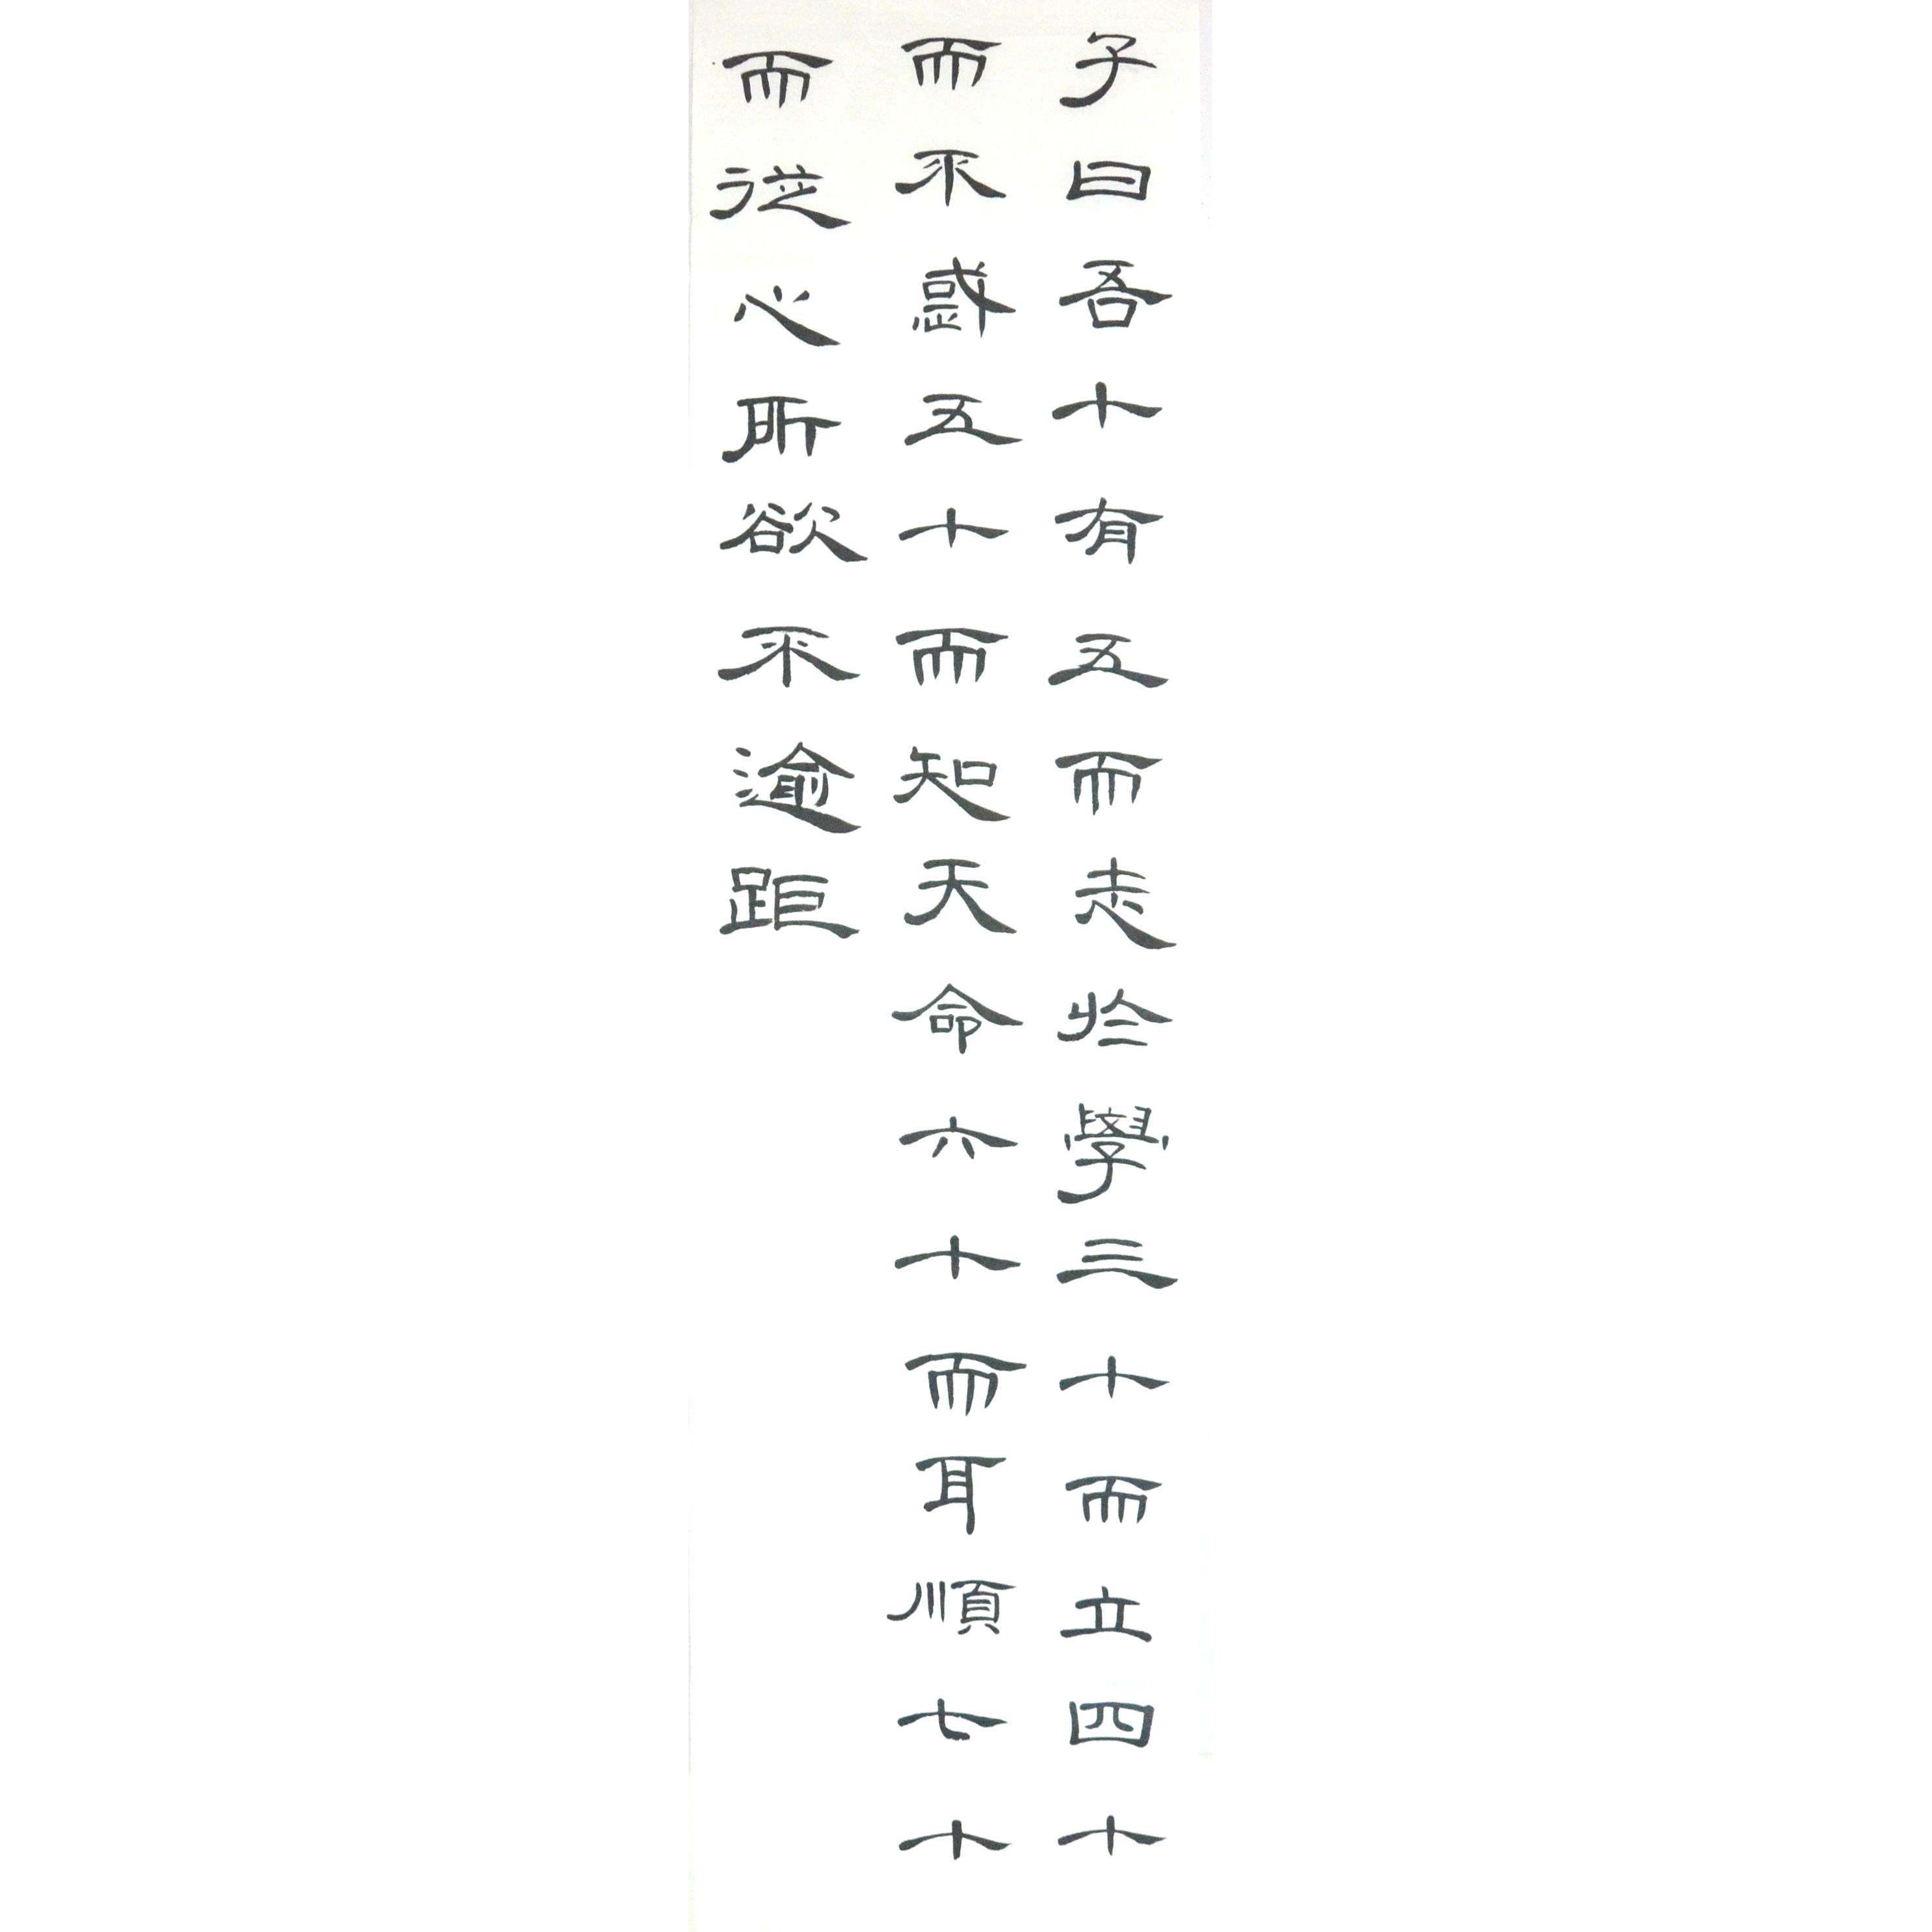 子曰吾十有五而志於學三十而立四十
而不惑五十而知天命六十而耳順七十
而從心所欲不逾距